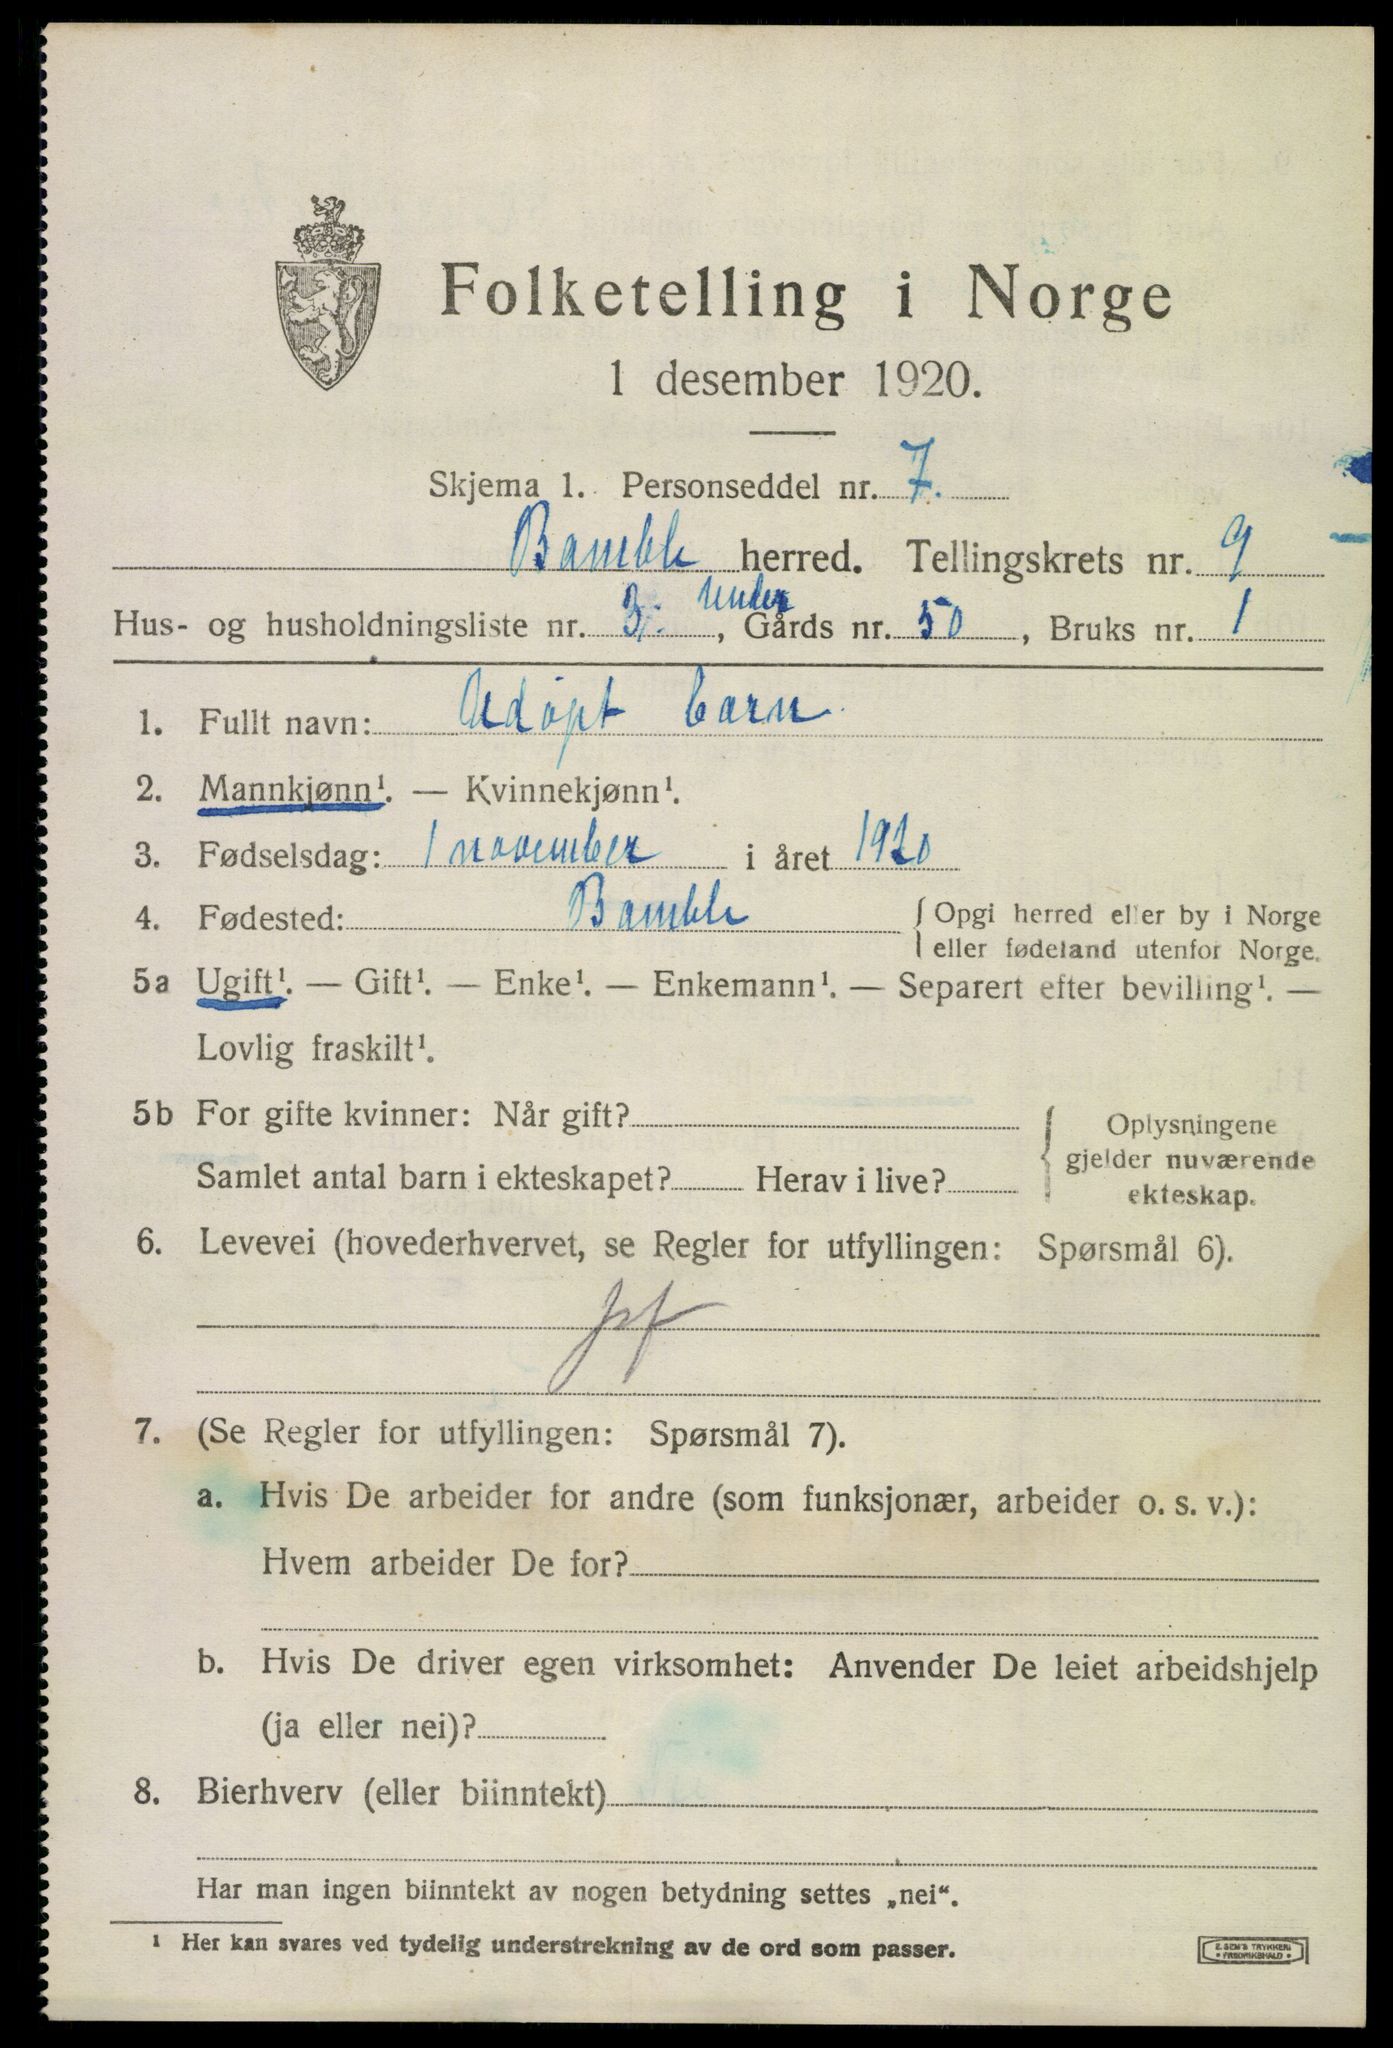 Folketelling i Norge
1 desember 1920.
Skjema 1. Personseddel nr. 7.
Bamble herred. Tellingskrets nr. 9
Hus- og husholdningsliste nr. 3. under, Gårds nr. 50, Bruks nr. 1
1. Fullt navn: Udøpt barn
2. Mannkjønn¹. — Kvinnekjønn¹.
3. Fødselsdag: 1 november i året 1920
4. Fødested: Bamble { Opgi herred eller by i Norge
eller fødeland utenfor Norge.
5a Ugift¹. — Gift¹. — Enke¹. — Enkemann¹. — Separert efter bevilling¹. —
Lovlig fraskilt¹.
5b For gifte kvinner: Når gift?
Samlet antal barn i ekteskapet? Herav i live?
Oplysningene
gjelder nuværende
ekteskap.
6. Levevei (hovederhvervet, se Regler for utfyllingen: Spørsmål 6).
7. (Se Regler for utfyllingen: Spørsmål 7).
a. Hvis De arbeider for andre (som funksjonær, arbeider o. s. v.):
Hvem arbeider De for?
b. Hvis De driver egen virksomhet: Anvender De leiet arbeidshjelp
(ja eller nei)?
8. Bierhverv (eller biinntekt)
Har man ingen biinntekt av nogen betydning settes „nei“.
¹ Her kan svares ved tydelig understrekning av de ord som passer.
E. SEM'S TRYKKERI
• FREDRIKSHALD •